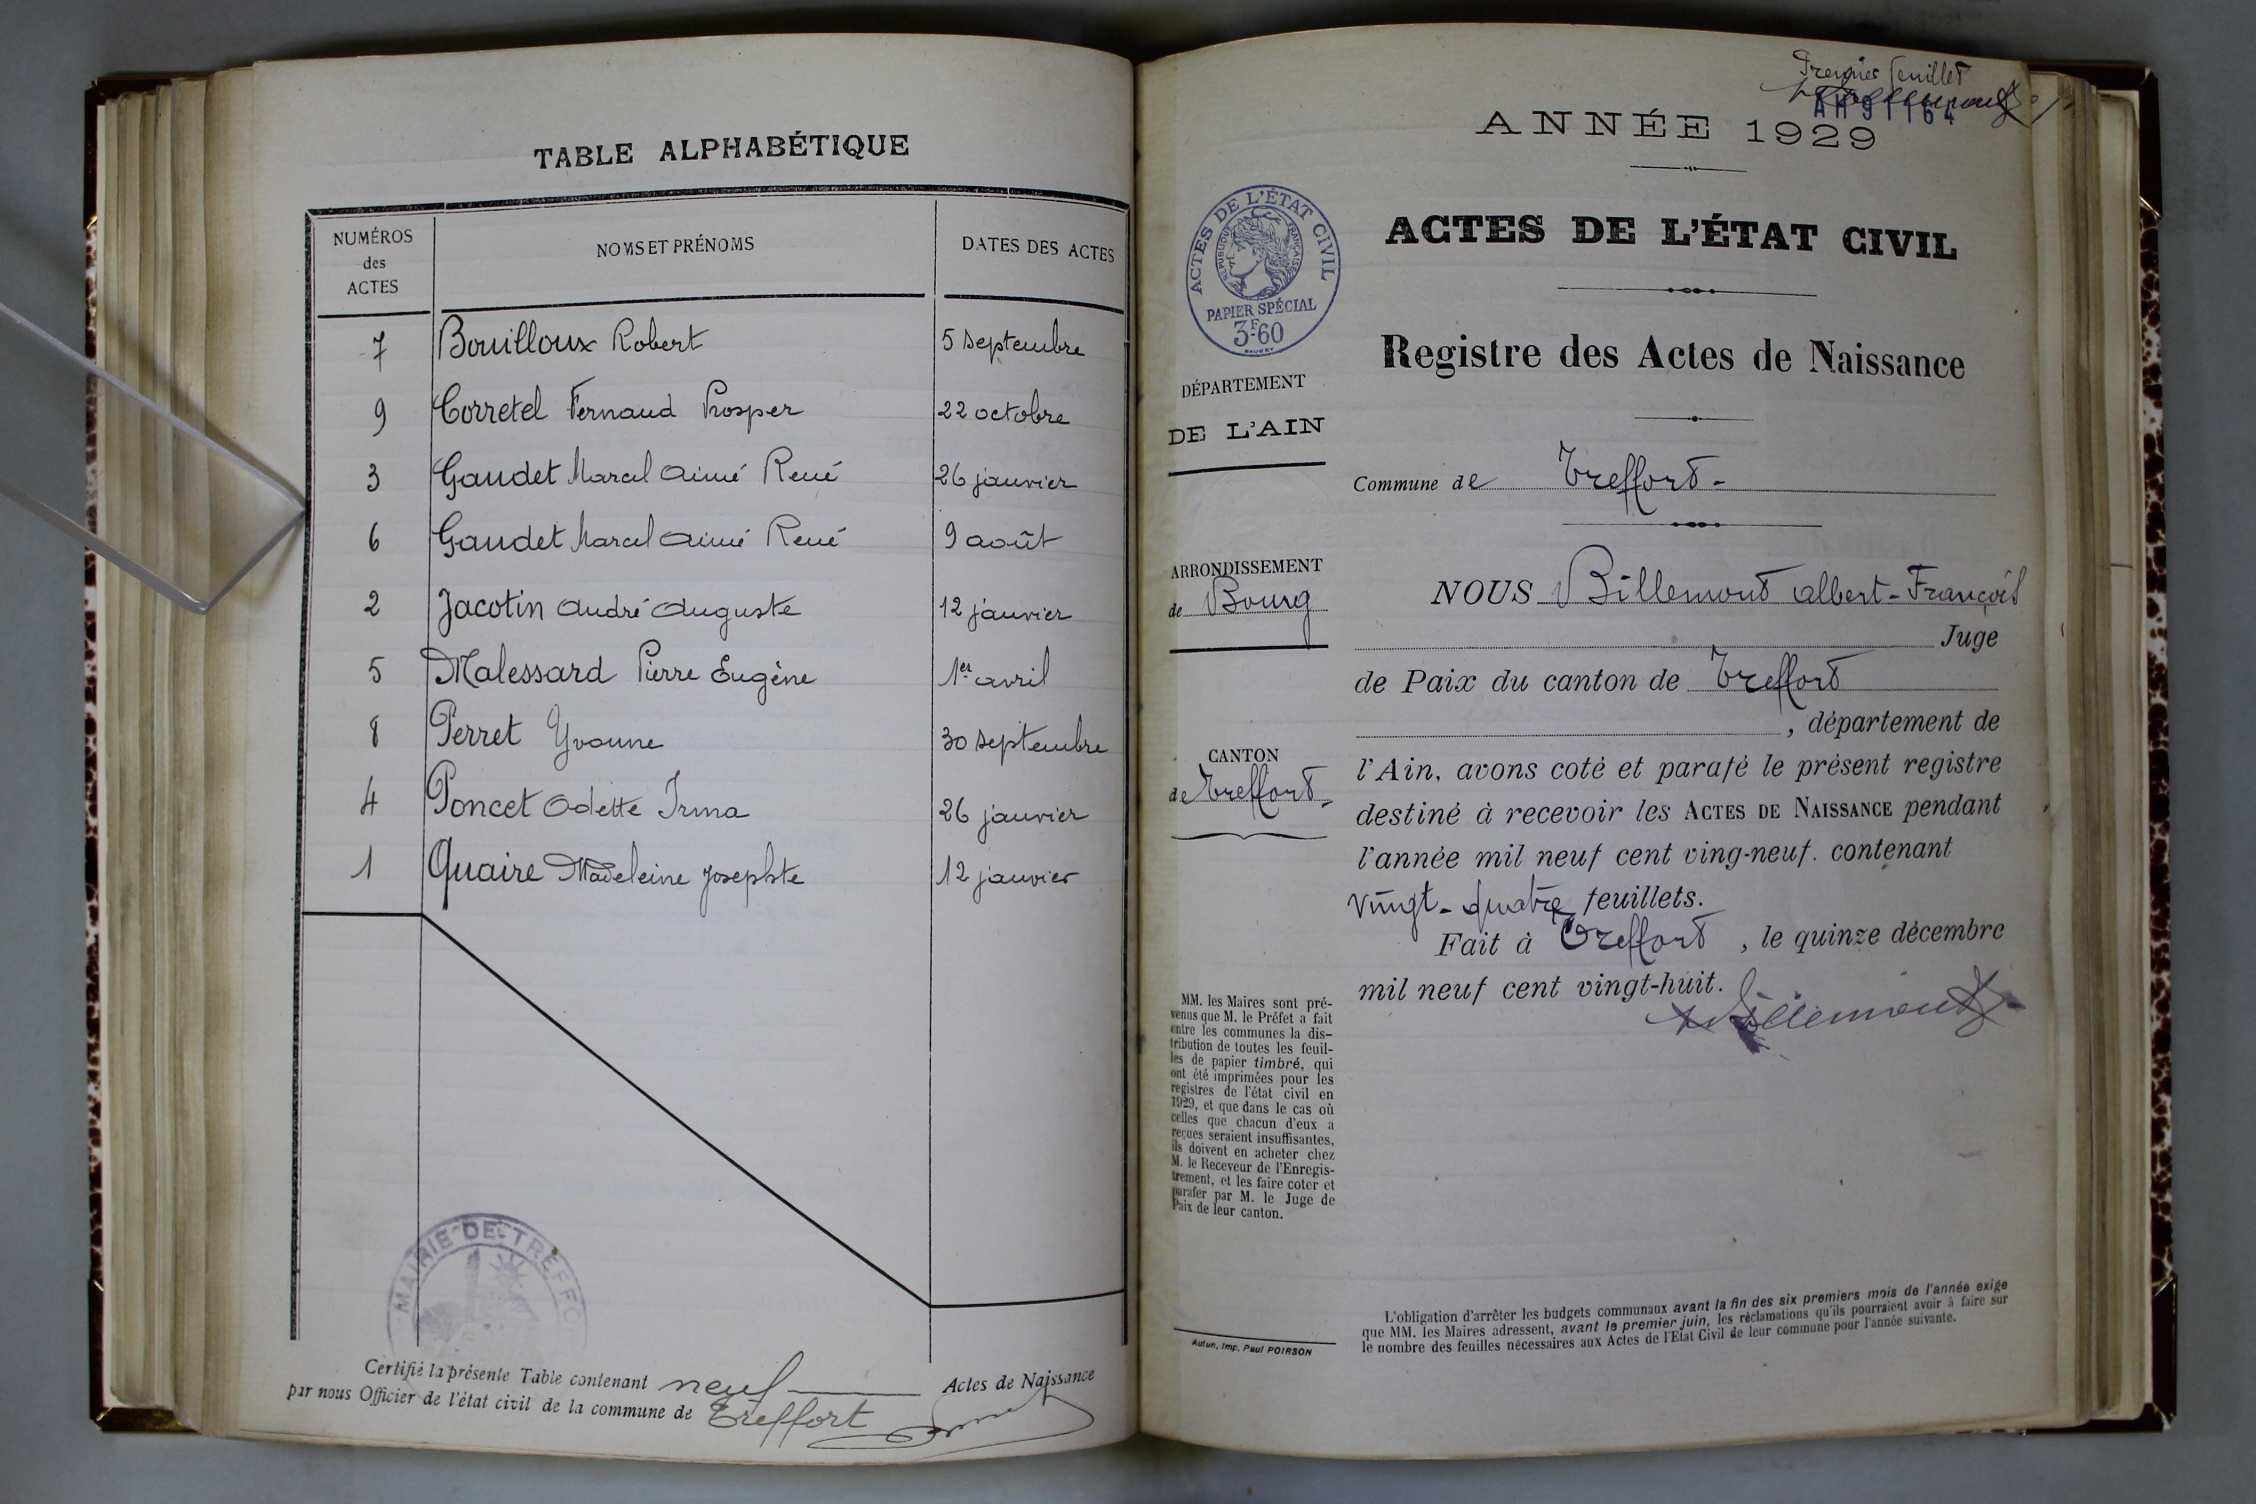 TABLE ALPHABÉTIQUE
NUMÉROS des ACTES NOMS ET PRÉNOMS DATES DES ACTES
7 Bouilloux Robert 5 septembre
9 Corretel Fernand Prosper 22 octobre
3 Gaudet Marcel Aimé René 26 janvier
6 Gaudet Marcel Aimé René 9 août
2 Jacotin André Auguste 12 janvier
5 Malessard Pierre Eugène 1er avril
8 Perret Yvonne 30 septembre
4 Poncet Odette Irma 26 janvier
1 Quaire Madeleine Josephte 12 janvier
MAIRIE DE TREFFO
Certifié la présente Table contenant neuf Actes de Naissance
par nous Officier de l'état civil de la commune de Treffort
Premier feuillet
AH 91164
ANNÉE 1929
ACTES DE L'ÉTAT CIVIL
Registre des Actes de Naissance
ACTES DE L'ÉTAT CIVIL
RÉPUBLIQUE FRANÇAISE
PAPIER SPÉCIAL
3F60
DÉPARTEMENT
DE L'AIN
ARRONDISSEMENT
de Bourg
CANTON
de Treffort.
MM. les Maires sont pré-
venus que M. le Préfet a fait
entre les communes la dis-
tribution de toutes les feuil-
les de papier timbré, qui
ont été imprimées pour les
registres de l'état civil en
1929, et que dans le cas où
celles que chacun d'eux a
reçues seraient insuffisantes,
ils doivent en acheter chez
M. le Receveur de l'Enregis-
trement, et les faire coter et
parafer par M. le Juge de
Paix de leur canton.
Autun, Imp. Paul POIRSON
Commune de Treffort -
NOUS Billemont Albert-François
Juge
de Paix du canton de Treffort
, département de
l'Ain, avons coté et parafé le présent registre
destiné à recevoir les ACTES DE NAISSANCE pendant
l'année mil neuf cent ving-neuf. contenant
vingt-quatre feuillets.
Fait à Treffort, le quinze décembre
mil neuf cent vingt-huit.
Billemont
L'obligation d'arrêter les budgets communaux avant la fin des six premiers mois de l'année exige
que MM. les Maires adressent, avant le premier juin, les réclamations qu'ils pourraient avoir à faire sur
le nombre des feuilles nécessaires aux Actes de l'Etat Civil de leur commune pour l'année suivante.